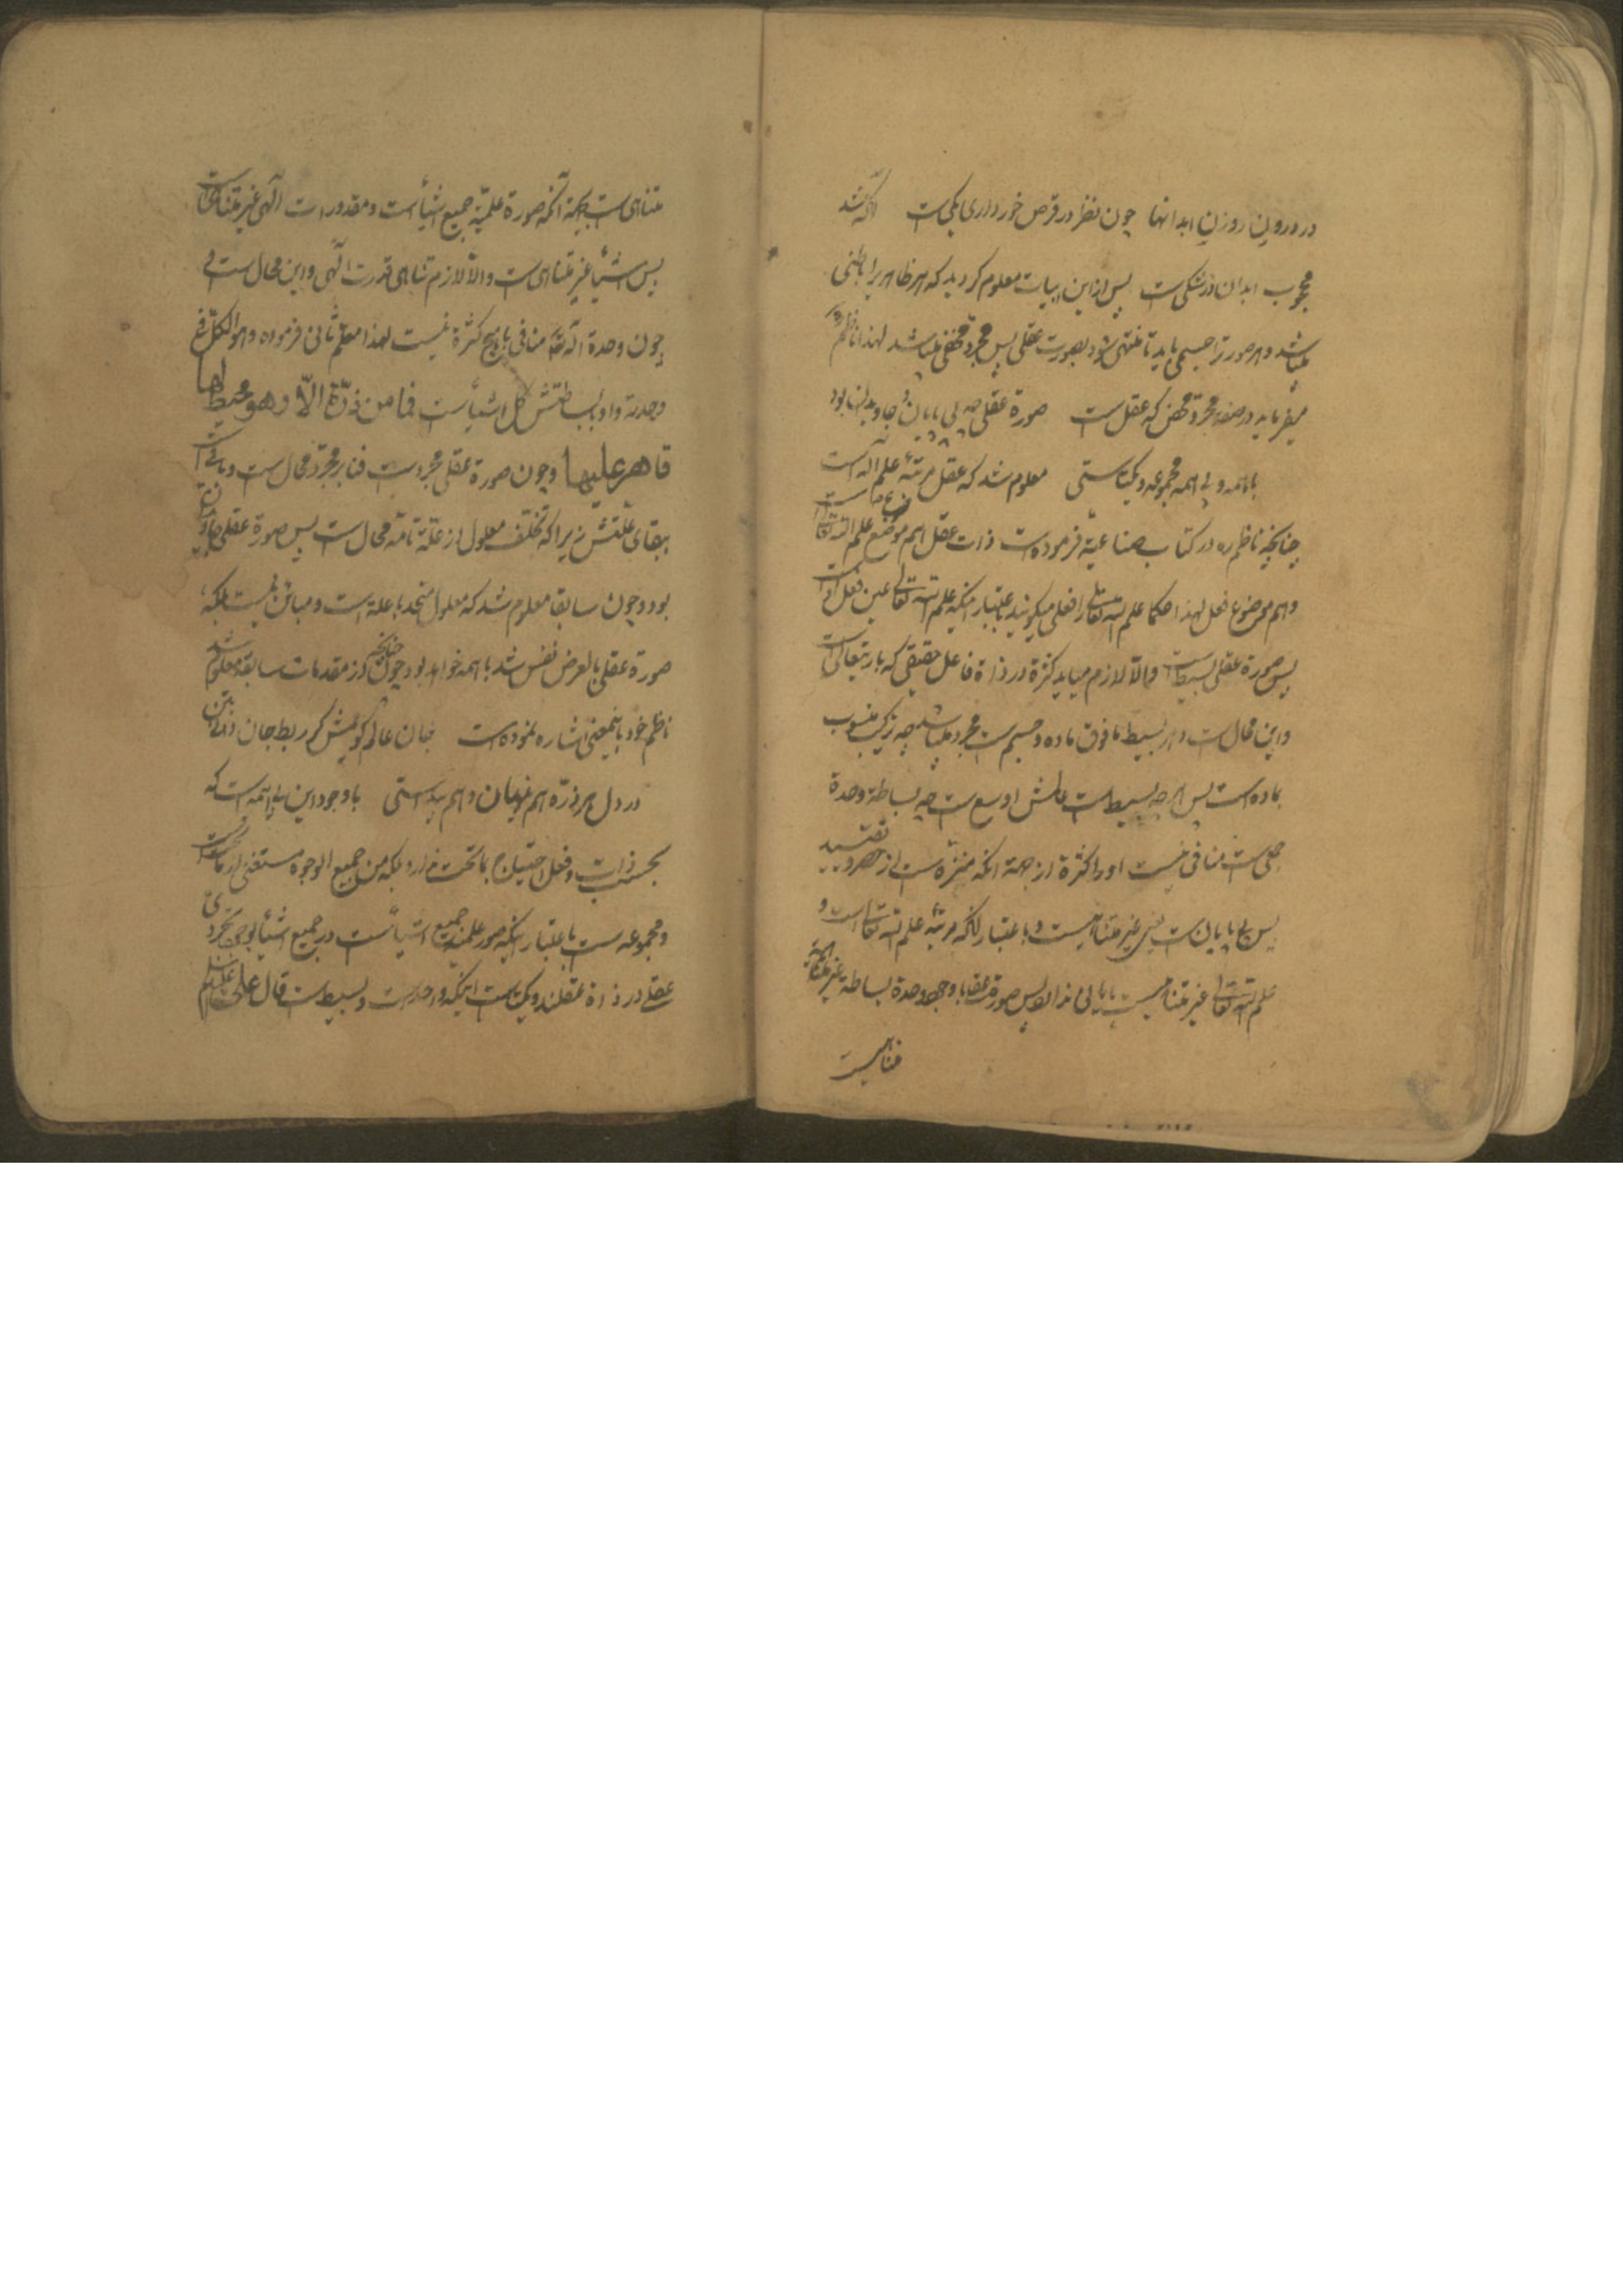 در درون روزن ابدانها چون نظر در قرص خور داری یکی است آنکه شد
محجوب ابدان در شکی است پس از این ابیات معلوم گردید که هر ظاهر را باطنی
میباشد و هر صورة جسمی باید تا منتهی شود بصورت عقلی پس مجرد محض میباشد لهذا ناظم ره
میفرماید در صفة مجرد محض که عقل است صورة عقلی چه بی پایان و جاویدان بود
با همه و بی همه مجموعه و یکتاستی معلوم شد که عقل مرتبهٔ علم اله است
چنانچه ناظم ره در کتاب صناعیة فرموده است ذات عقل هم موضع علم الله تعالی است
و هم موضوع فعل لهذا حکما علم الله تعالی را فعلی میگویند باعتبار اینکه علم الله تعالی عین فعل است
پس صورة عقلی بسیط است والّا لازم میاید کثرة در ذاة فاعل حقیقی که باریتعالی است
و این محال است و هر بسیط مافوق ماده و جسم است مجرد میباشد چه ترکیب منسوب
بماده است پس هر چه بسیط است عالمش اوسع است چه بساطة وحدة
جمعی است منافی نیست او را کثرة از جهة آنکه منزه است از حصر و تقیید
پس بی پایان است یعنی غیر متناهیست و باعتبار آنکه مرتبهٔ علم الله تعالی است و
علم الله تعالی غیر متناهیست پس صورة عقلی با وجود وحدة بساطة غیر
متناهیست
متناهی است بجهة آنکه صورة علمیّه جمیع اشیأ است و مقدورات الهی غیر متناهی است
پس اشیأ غیر متناهی است والّا لازم تناهی قدرت الهی و این محال است
چون وحدة اله تعالی منافی با هیچ کثرة نیست لهذا معلم ثانی فرموده و هو الکل فی
وحدته و او ببساطتش کل اشیأ است فما من ذرّة الّا و هو محیط بها
قاهر علیها و چون صورة عقلی مجرد است فنا بر مجرد محال است و باقی است
ببقای علّتش زیرا که تخلّف معلول از علّة تامّه محال است پس صورة عقلی جاویدان
بود و چون سابقا معلوم شد که معلول متحد با علة است و مباین نیست بلکه
صورة عقلی بالعرض نفس شد با همه خواهد بود چنانچه از مقدمات سابقه معلوم شد
ناظم خود باینمعنی اشاره نموده است جان عالم گویمش گر ربط جان دانی بتن
در دل هر ذرّه هم پنهان و هم پیداستی با وجود این بی همه است که
بحسب ذات و فعل احتیاج بماتحت ندارد بلکه من جمیع الوجوه مستغنی از ماتحت است
و مجموعه است باعتبار اینکه صور علمیهٔ جمیع اشیأ است و جمیع اشیأ بوجود تجردی
عقلی در ذاة عقلند و یکتاست اینکه واحد است و بسیط است قال علی علیه السلام